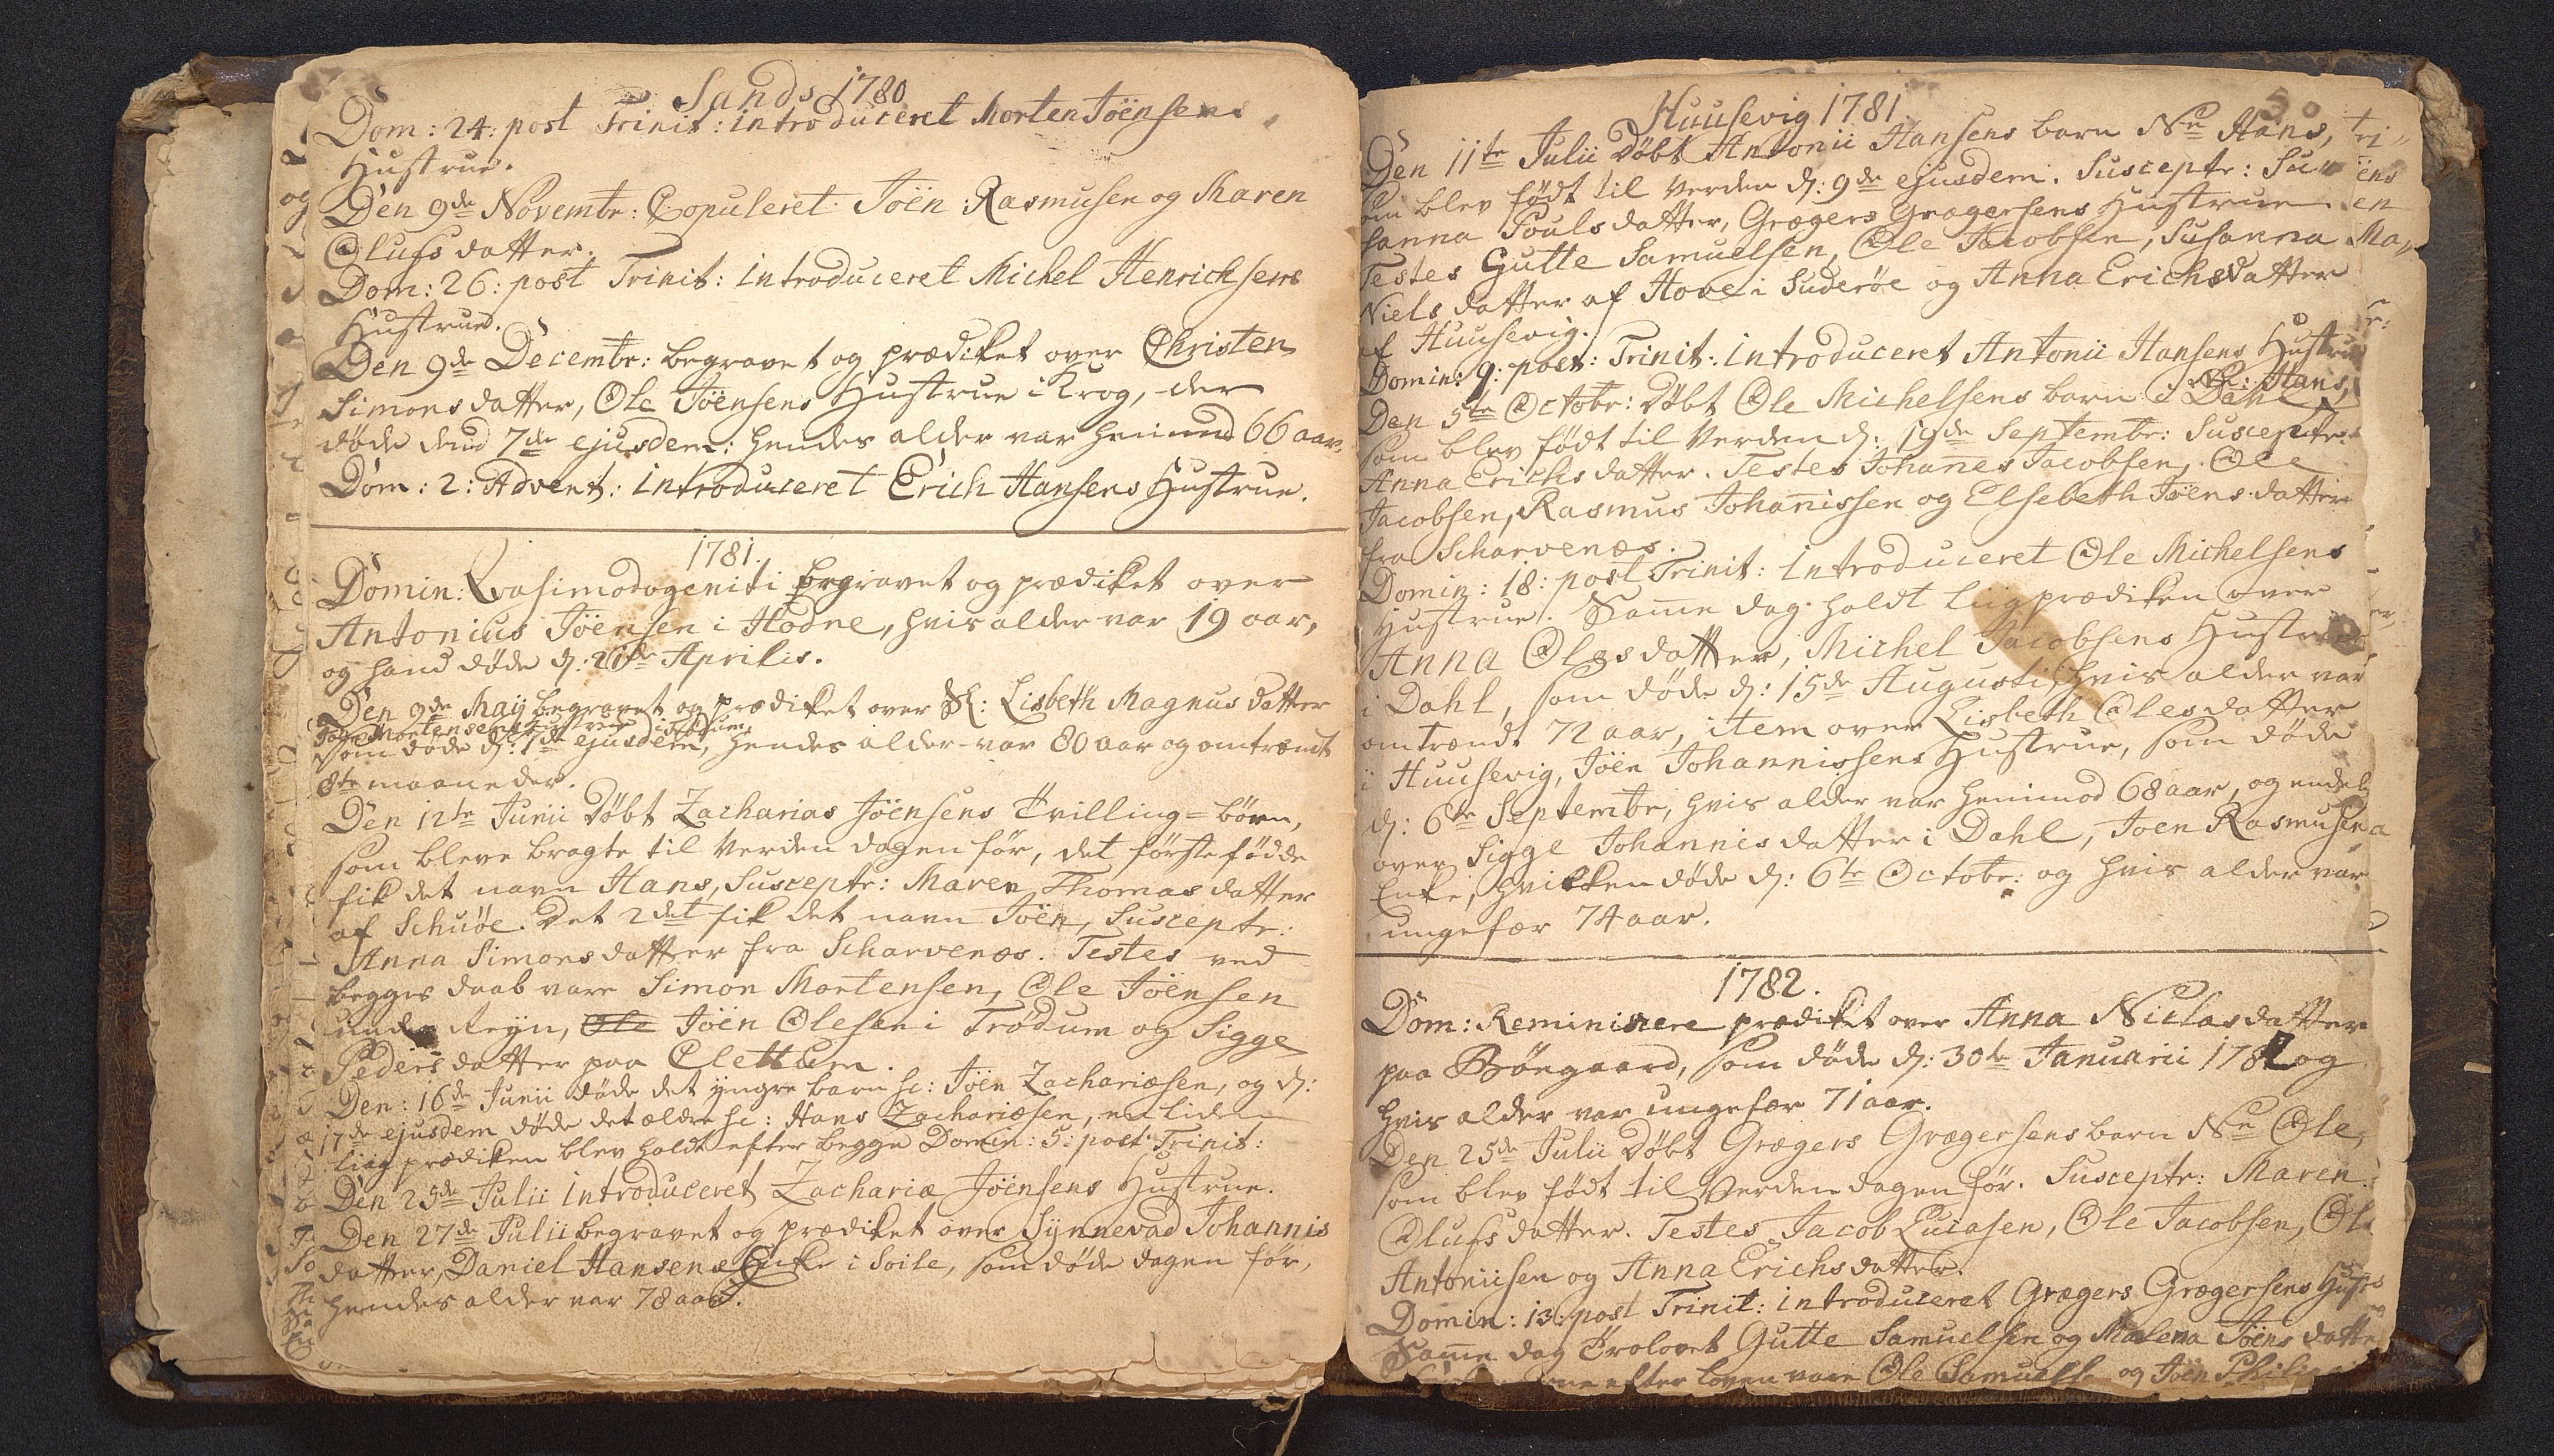 Sands 1780
Dom: 24: post Trinit: introduceret Morten Joënsens
Hustrue.
Den 9de Novembr: Copuleret Joën Rasmusen og Maren
Olufsdatter.
Dom: 26: post Trinit: introduceret Michel Henrichsens
Hustrue.
Den 9de Decembr: begravet og prædiket over Christen
Simonsdatter, Ole Joënsens Hustrue i Krog, der
døde dend 7de ejusdem: hendes alder var henimod 66 aar.
Dom: 2: Advent: introduceret Erich Hansens Hustrue.
1781.
Domin: Qvasimodogeniti begravet og prædiket over
Antonius Joënsen i Hodne, hvis alder var 19 aar,
og hand døde d: 21de Aprilis.
Den 9de Maij begravet og prædiket over Sl: Lisbeth Magnusdatter
Joën Mortensens Hustrue i
som døde d: 1de ejusdem, hendes alder var 80 aar og omtrændt
8te maaneder.
Den 12te Junii døbt Zacharias Joënsens Tvilling=børn,
som bleve bragte til Verden dagen før, det første fødde
fik det navn Hans, Susceptr: Maren Thomasdatter
af Schuøe. Det 2det fik det navn Joën, Susceptr:
Anna Simonsdatter fra Scharvenæs. Testes ved
begges daab vare Simon Mortensen, Ole Joënsen
under Reÿn, Ole Joën Olesen i Trødum og Sigge
Pedersdatter paa Clettum.
Den: 16de Junii døde det ÿngre barn sc: Joën Zachariæsen, og d:
17de ejusdem døde det ældre sc: Hans Zachariæsen, en liden
liigprædiken blev holdt efter begge Domin: 5: post Trinit:
Den 25de Julii introduceret Zachariæ Joënsens Hustrue.
Den 27de Julii begravet og prædiket over Sÿnnevad Johannis
datter, Daniel Hansens Enke i Soile, som døde dagen før,
hendes alder var 78 aar.
50
Huusevig 1781
Den 11te Julii døbt Antonii Hansens barn Nn Hans,
som blev født til Verden d: 9de ejusdem. Susceptr: Su
sanna Poulsdatter, Grægers Grægersens Hustrue
Testes Gutte Samuelsen, Ole Jacobsen, Susanna
Nielsdatter af Hove i Suderøe og Anna Erichsdatter
af Huusevig.
Domin: 9: post: Trinit: introduceret Antonii Hansens Hustrue
Den 5te Octobr: døbt Ole Michelsens barn i Dahl Nn: Hans,
som blev født til Verden d: 19de Septembr: Susceptr:
Anna Erichsdatter. Testes Johanes Jacobsen, Ole
Jacobsen, Rasmus Johanissen og Elsebeth Joënsdatter
fra Scharvenæs.
Domin: 18: post Trinit: introduceret Ole Michelsens
Hustrue. Same dag holdt liigprædiken over
Anna Olesdatter, Michel Jacobsens Hustrue
i Dahl, som døde d: 15de Augusti, hvis alder var
omtrændt 72 aar, item over Lisbeth Olesdatter
i Huusevig, Joën Johannissens Hustrue, som døde
d: 6te Septembr, hvis alder var henimod 68 aar, og endel:
over Sigge Johannisdatter i Dahl, Joen Rasmusens
Enke, hvilken døde d: 6te Octobr: og hvis alder var
ungefær 74 aar.
1782.
Dom: Reminiscere prædiket over Anna Niclasdatter
paa Bøngaard, som døde d: 30te Januarii 1782 og
hvis alder var ungefær 71 aar.
Den 25de Julii døbt Grægers Grægersens barn Nn Ole,
som blev født til Verden dagen før. Susceptr: Maren
Olufsdatter. Testes Jacob Lucasen, Ole Jacobsen, Ole
Antoniisen og Anna Erichsdatter.
Domin: 13: post Trinit: introduceret Grægers Grægersens Hustr
Same dag Trolovet Gutte Samuelsen og Malena Joënsdatter
efter loven vare Ole Samuels og Joën